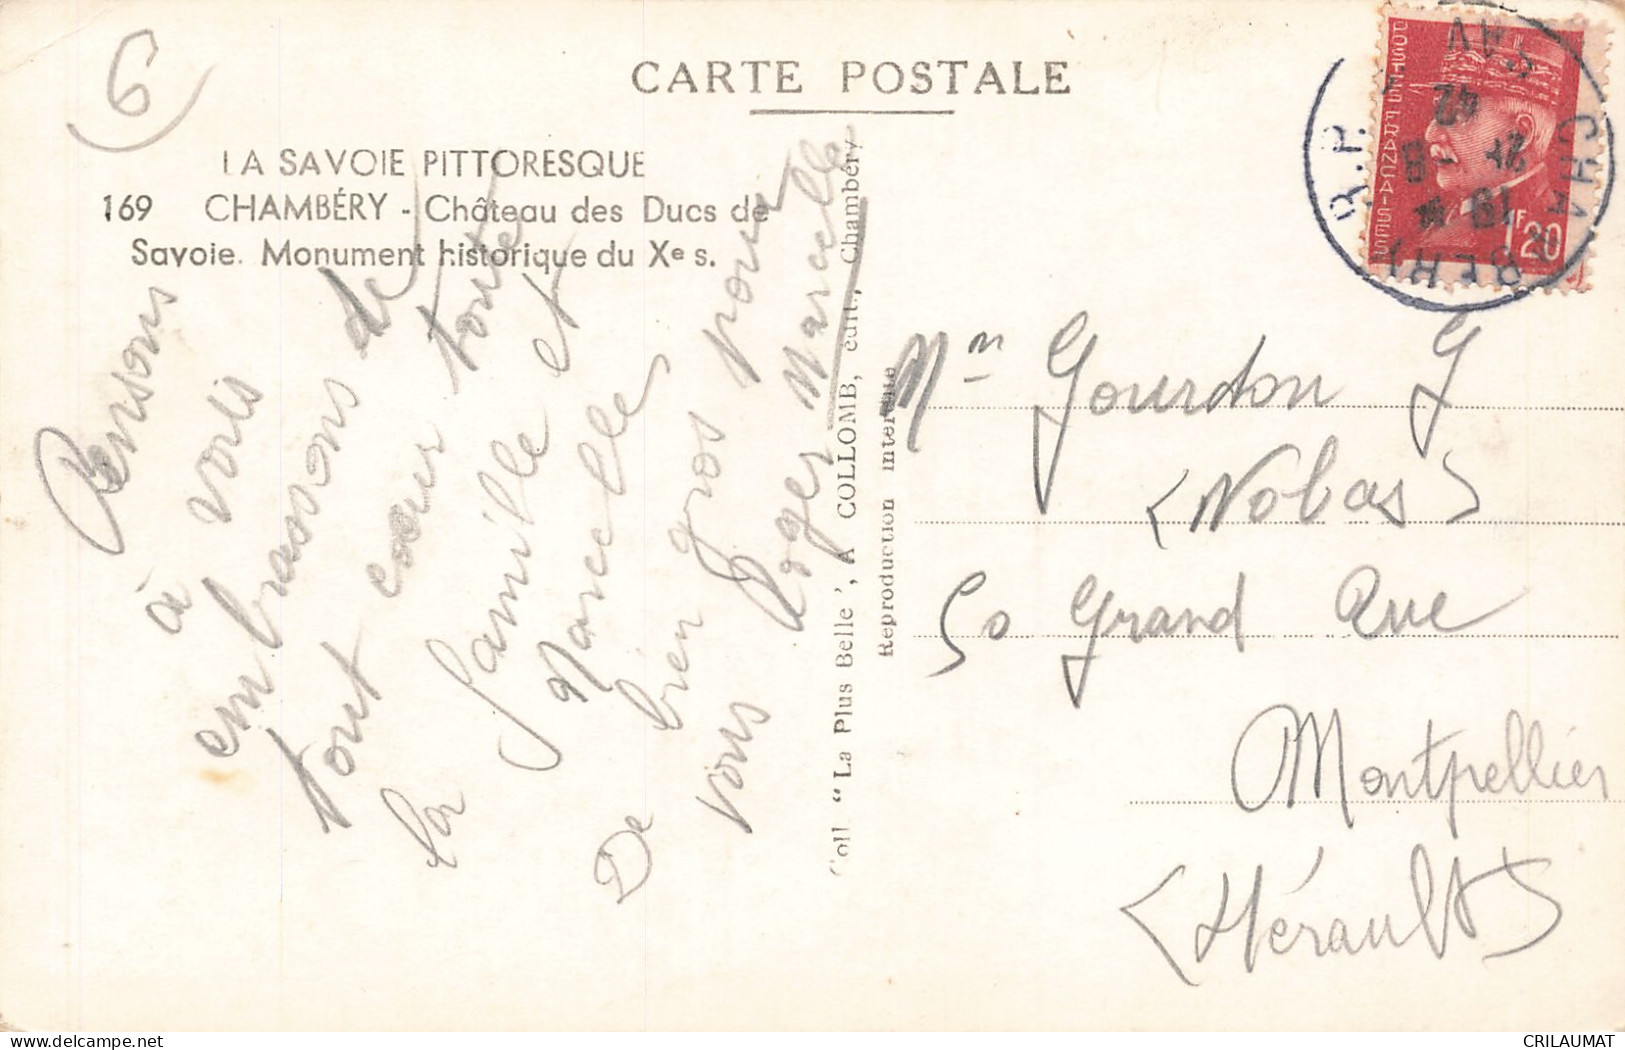 6
CARTE POSTALE
LA SAVOIE PITTORESQUE
169 CHAMBÉRY - Château des Ducs de
Savoie. Monument historique du Xe s.
Pensons
à vous
embrassons de
tout cœur toute
la famille et
Marcelle
De bien gros pour
vous Roger Marcelle
Coll "La Plus Belle", A COLLOMB, édit., Chambéry
Reproduction interdite
POSTES FRANÇAISES
1F20
CHAMBERY R.P.
SAV
19 H
21 -8
42
Mr Gourdon J
(Nobas)
50 Grand Rue
Montpellier
(Hérault)
CRILAUMAT